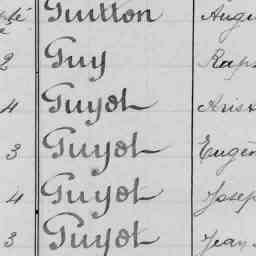 Guitton Aug
2 Guy Rap
4 Guyot Aris
3 Guyot Eugèn
4 Guyot Josep
3 Guyot Jean